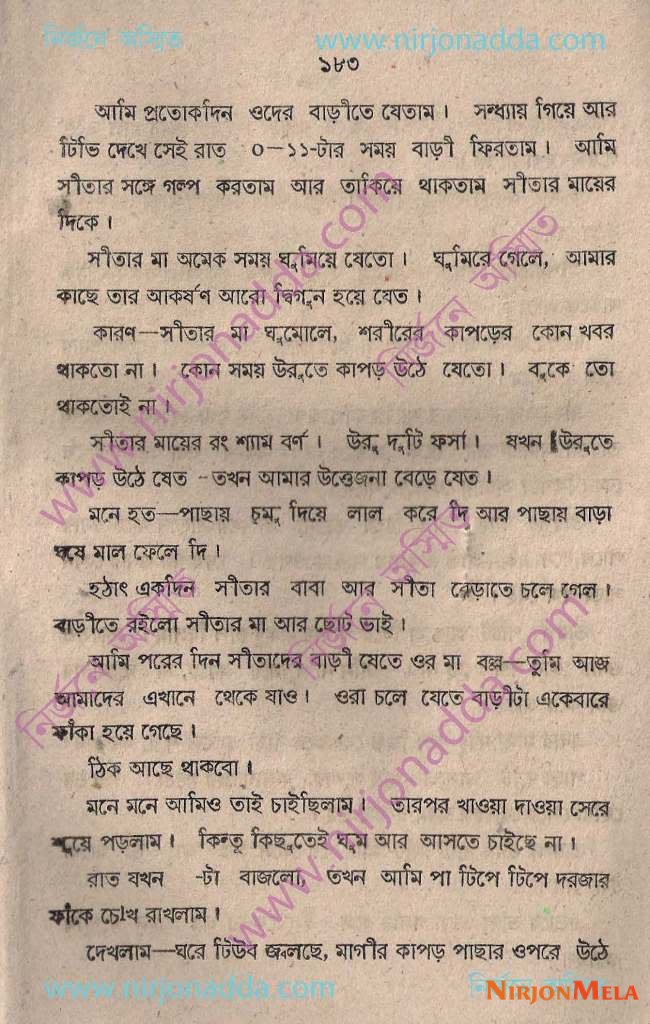 নির্জনে অস্মিত www.nirjonadda.com
১৮৩
আমি প্রত্যেকদিন ওদের বাড়ীতে যেতাম। সন্ধ্যায় গিয়ে আর
টিভি দেখে সেই রাত ০—১১-টার সময় বাড়ী ফিরতাম। আমি
সীতার সঙ্গে গল্প করতাম আর তাকিয়ে থাকতাম সীতার মায়ের
দিকে।
সীতার মা অমেক সময় ঘুমিয়ে যেতো। ঘুমিরে গেলে, আমার
কাছে তার আকর্ষণ আরো দ্বিগুন হয়ে যেত।
কারণ—সীতার মা ঘুমোলে, শরীরের কাপড়ের কোন খবর
থাকতো না। কোন সময় উরুতে কাপড় উঠে যেতো। বুকে তো
থাকতোই না।
সীতার মায়ের রং শ্যাম বর্ণ। উরু দুটি ফর্সা। যখন উরুতে
কাপড় উঠে যেত -তখন আমার উত্তেজনা বেড়ে যেত।
মনে হত—পাছায় চুমু দিয়ে লাল করে দি আর পাছায় বাড়া
ঘষে মাল ফেলে দি।
হঠাৎ একদিন সীতার বাবা আর সীতা বেড়াতে চলে গেল।
বাড়ীতে রইলো সীতার মা আর ছোট ভাই।
আমি পরের দিন সীতাদের বাড়ী যেতে ওর মা বল্ল—তুমি আজ
আমাদের এখানে থেকে যাও। ওরা চলে যেতে বাড়ীটা একেবারে
ফাঁকা হয়ে গেছে।
ঠিক আছে থাকবো।
মনে মনে আমিও তাই চাইছিলাম। তারপর খাওয়া দাওয়া সেরে
শুয়ে পড়লাম। কিন্তু কিছুতেই ঘুম আর আসতে চাইছে না।
রাত যখন -টা বাজলো, তখন আমি পা টিপে টিপে দরজার
ফাঁকে চোখ রাখলাম।
দেখলাম—ঘরে টিউব জ্বলছে, মাগীর কাপড় পাছার ওপরে উঠে
www.nirjonadda.com
NIRJONMELA